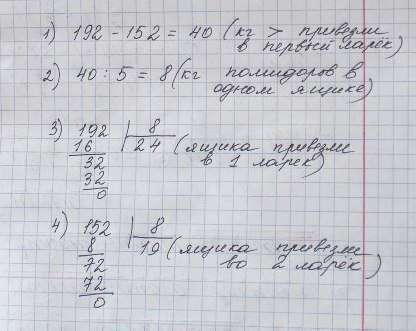 1) 192 - 152 = 40 (кг > привезли
в первый ларёк)
2) 40 : 5 = 8 (кг помидоров в
одном ящике)
3) 192 | 8
16 24 (ящика привезли
32 в 1 ларек)
32
0
4) 152 | 8
8 19 (ящика привезли
72 во 2 ларёк)
72
0